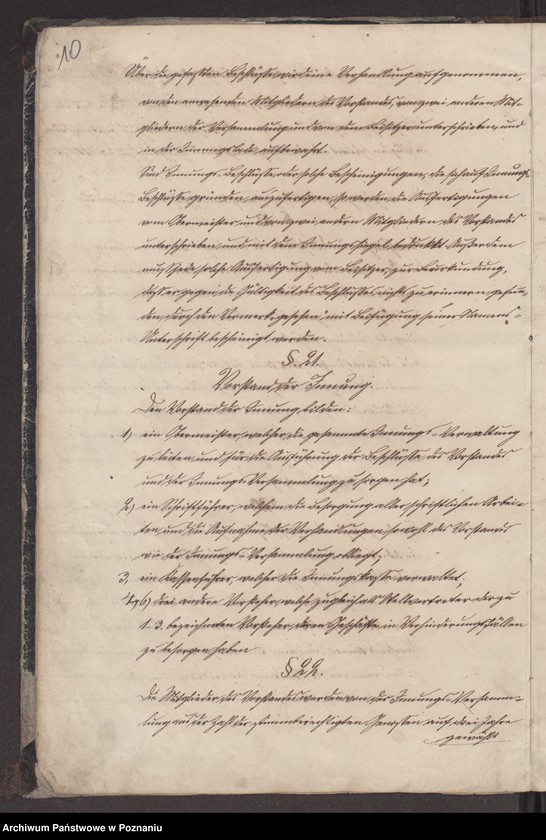 10
Über die gefaßten Beschlüsse wird eine Verhandlung aufgenommen,
von den anwesenden Mitgliedern des Vorstandes, von zwei anderen Mit-
gliedern der Versammlung und von dem Beisitzer unterschrieben, und
in der Innungslade aufbewahrt.
Sind Innungs-Beschlüsse oder solche Bescheinigungen, die sich auf Innungs-
Beschlüsse gründen, auszufertigen, so werden die Ausfertigungen
vom Obermeister und von zwei andern Mitgliedern des Vorstandes
unterschrieben und mit dem Innungs-Siegel bedruckt. Außerdem
muß jede solche Ausfertigung vom Beisitzer, zur Beurkundung,
daß er gegen die Gültigkeit des Beschlusses nichts zu erinnern gefun-
den, durch den Vermerk „gesehen" mit Beifügung seiner Namens-
Unterschrift bescheinigt werden.
§. 21.
Vorstand der Innung.
Den Vorstand der Innung bilden:
1) ein Obermeister, welcher die gesammte Innungs-Verwaltung
zu leiten und für die Ausführung der Beschlüsse des Vorstandes
und der Innungs-Versammlung zu sorgen hat;
2) ein Schriftführer, welchem die Besorgung aller schriftlichen Arbei-
ten, und die Aufnahme der Verhandlungen sowohl des Vorstands
wie der Innungs-Versammlung obliegt;
3, ein Kassenführer, welcher die Innungskasse verwaltet.
4, 6) drei andere Vorsteher, welche zugleich als Stellvertreter der zu
1. 3. bezeichneten Vorsteher, deren Geschäfte in Verhinderungsfällen
zu besorgen haben
§ 22.
Die Mitglieder des Vorstandes werden von der Innungs-Versamm-
lung aus der Zahl der stimmberechtigten Genossen auf drei Jahre
gewählt
Archiwum Państwowe w Poznaniu